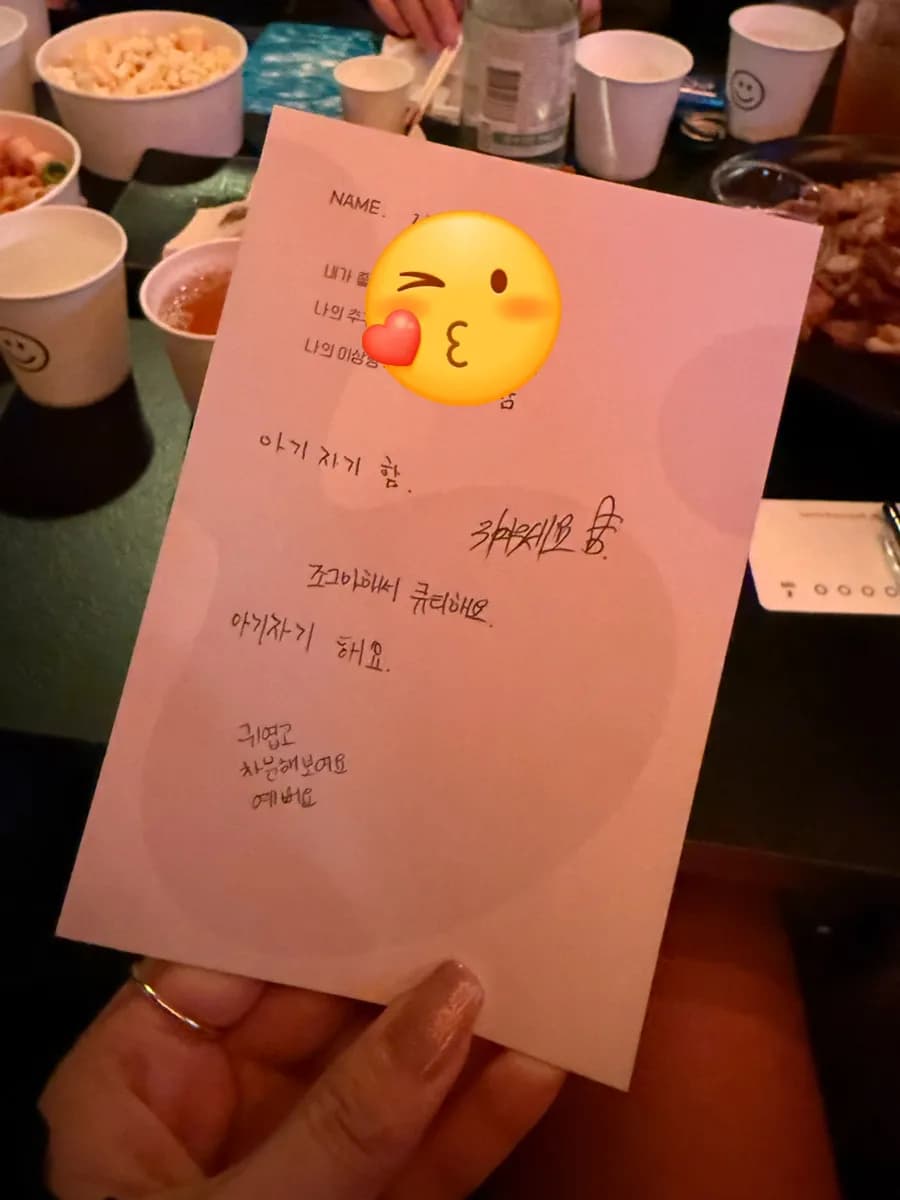 NAME.
내가
나의
나의 이상형
아기자기 함.
조그마해서 큐티해요.
아기자기 해요.
귀엽고
차분해보여요
예뻐요